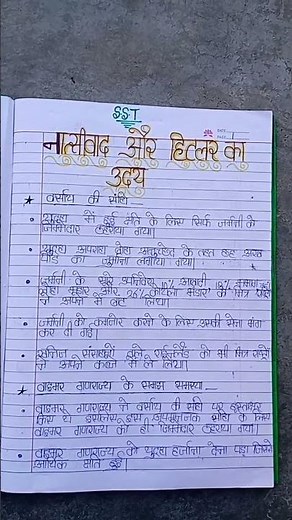 SST
DATE
PAGE
नात्सीवाद और हिटलर का
उदय
★ वर्साय की संधि —
• युद्ध में हुई क्षति के लिए सिर्फ जर्मनी को
जिम्मेदार ठहराया गया।
• युद्ध अपराध बोध अनुच्छेद के तहत छह अरब
पौंड का जुर्माना लगाया गया।
• जर्मनी के सारे उपनिवेश, 10% आबादी, 13%
लोहा भंडार और 26% कोयला भंडार को मित्र राष्ट्रों
ने आपस में बांट लिया।
• जर्मनी को कमजोर करने के लिए उसकी सेना भंग
कर दी गई।
• खनिज संसाधनों वाले राईनलैंड को भी मित्र राष्ट्रों
ने अपने कब्जे में ले लिया।
वाइमर गणराज्य के समक्ष समस्या —
• वाइमर गणराज्य ने वर्साय की संधि पर हस्ताक्षर
किए थे इसलिए इस अपमानजनक संधि के लिए
वाइमर गणराज्य को ही जिम्मेदार ठहराया गया।
• वाइमर गणराज्य को युद्ध हर्जाना देना पड़ा जिससे
आर्थिक